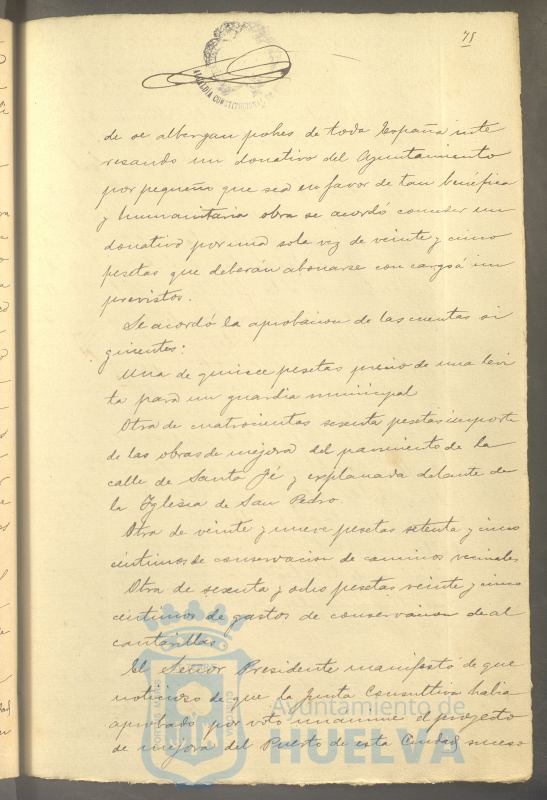 75
ALCALDIA CONSTITUCIONAL
de se albergan pobres de toda España inte
resando un donativo del Ayuntamiento
por pequeño que sea en favor de tan benéfica
y humanitaria obra se acordó conceder un
donativo por una sola vez de veinte y cinco
pesetas que deberán abonarse con cargo á im
previstos.
Se acordó la aprobacion de las cuentas si
guientes:
Una de quince pesetas precio de una levi
ta para un guardia municipal
Otra de cuatrocientas sesenta pesetas importe
de las obras de mejora del pavimento de la
calle de Santa Fé y explanada delante de
la Iglesia de San Pedro.
Otra de veinte y nueve pesetas setenta y cinco
céntimos de conservacion de caminos vecinales
Otra de sesenta y ocho pesetas veinte y cinco
céntimos de gastos de conservacion de al
cantarillas
El Señor Presidente manifestó de que
noticioso de que la Junta Consultiva habia
aprobado por voto unanime el proyecto
de mejora del Puerto de esta Ciudad, suceso
Ayuntamiento de
HUELVA